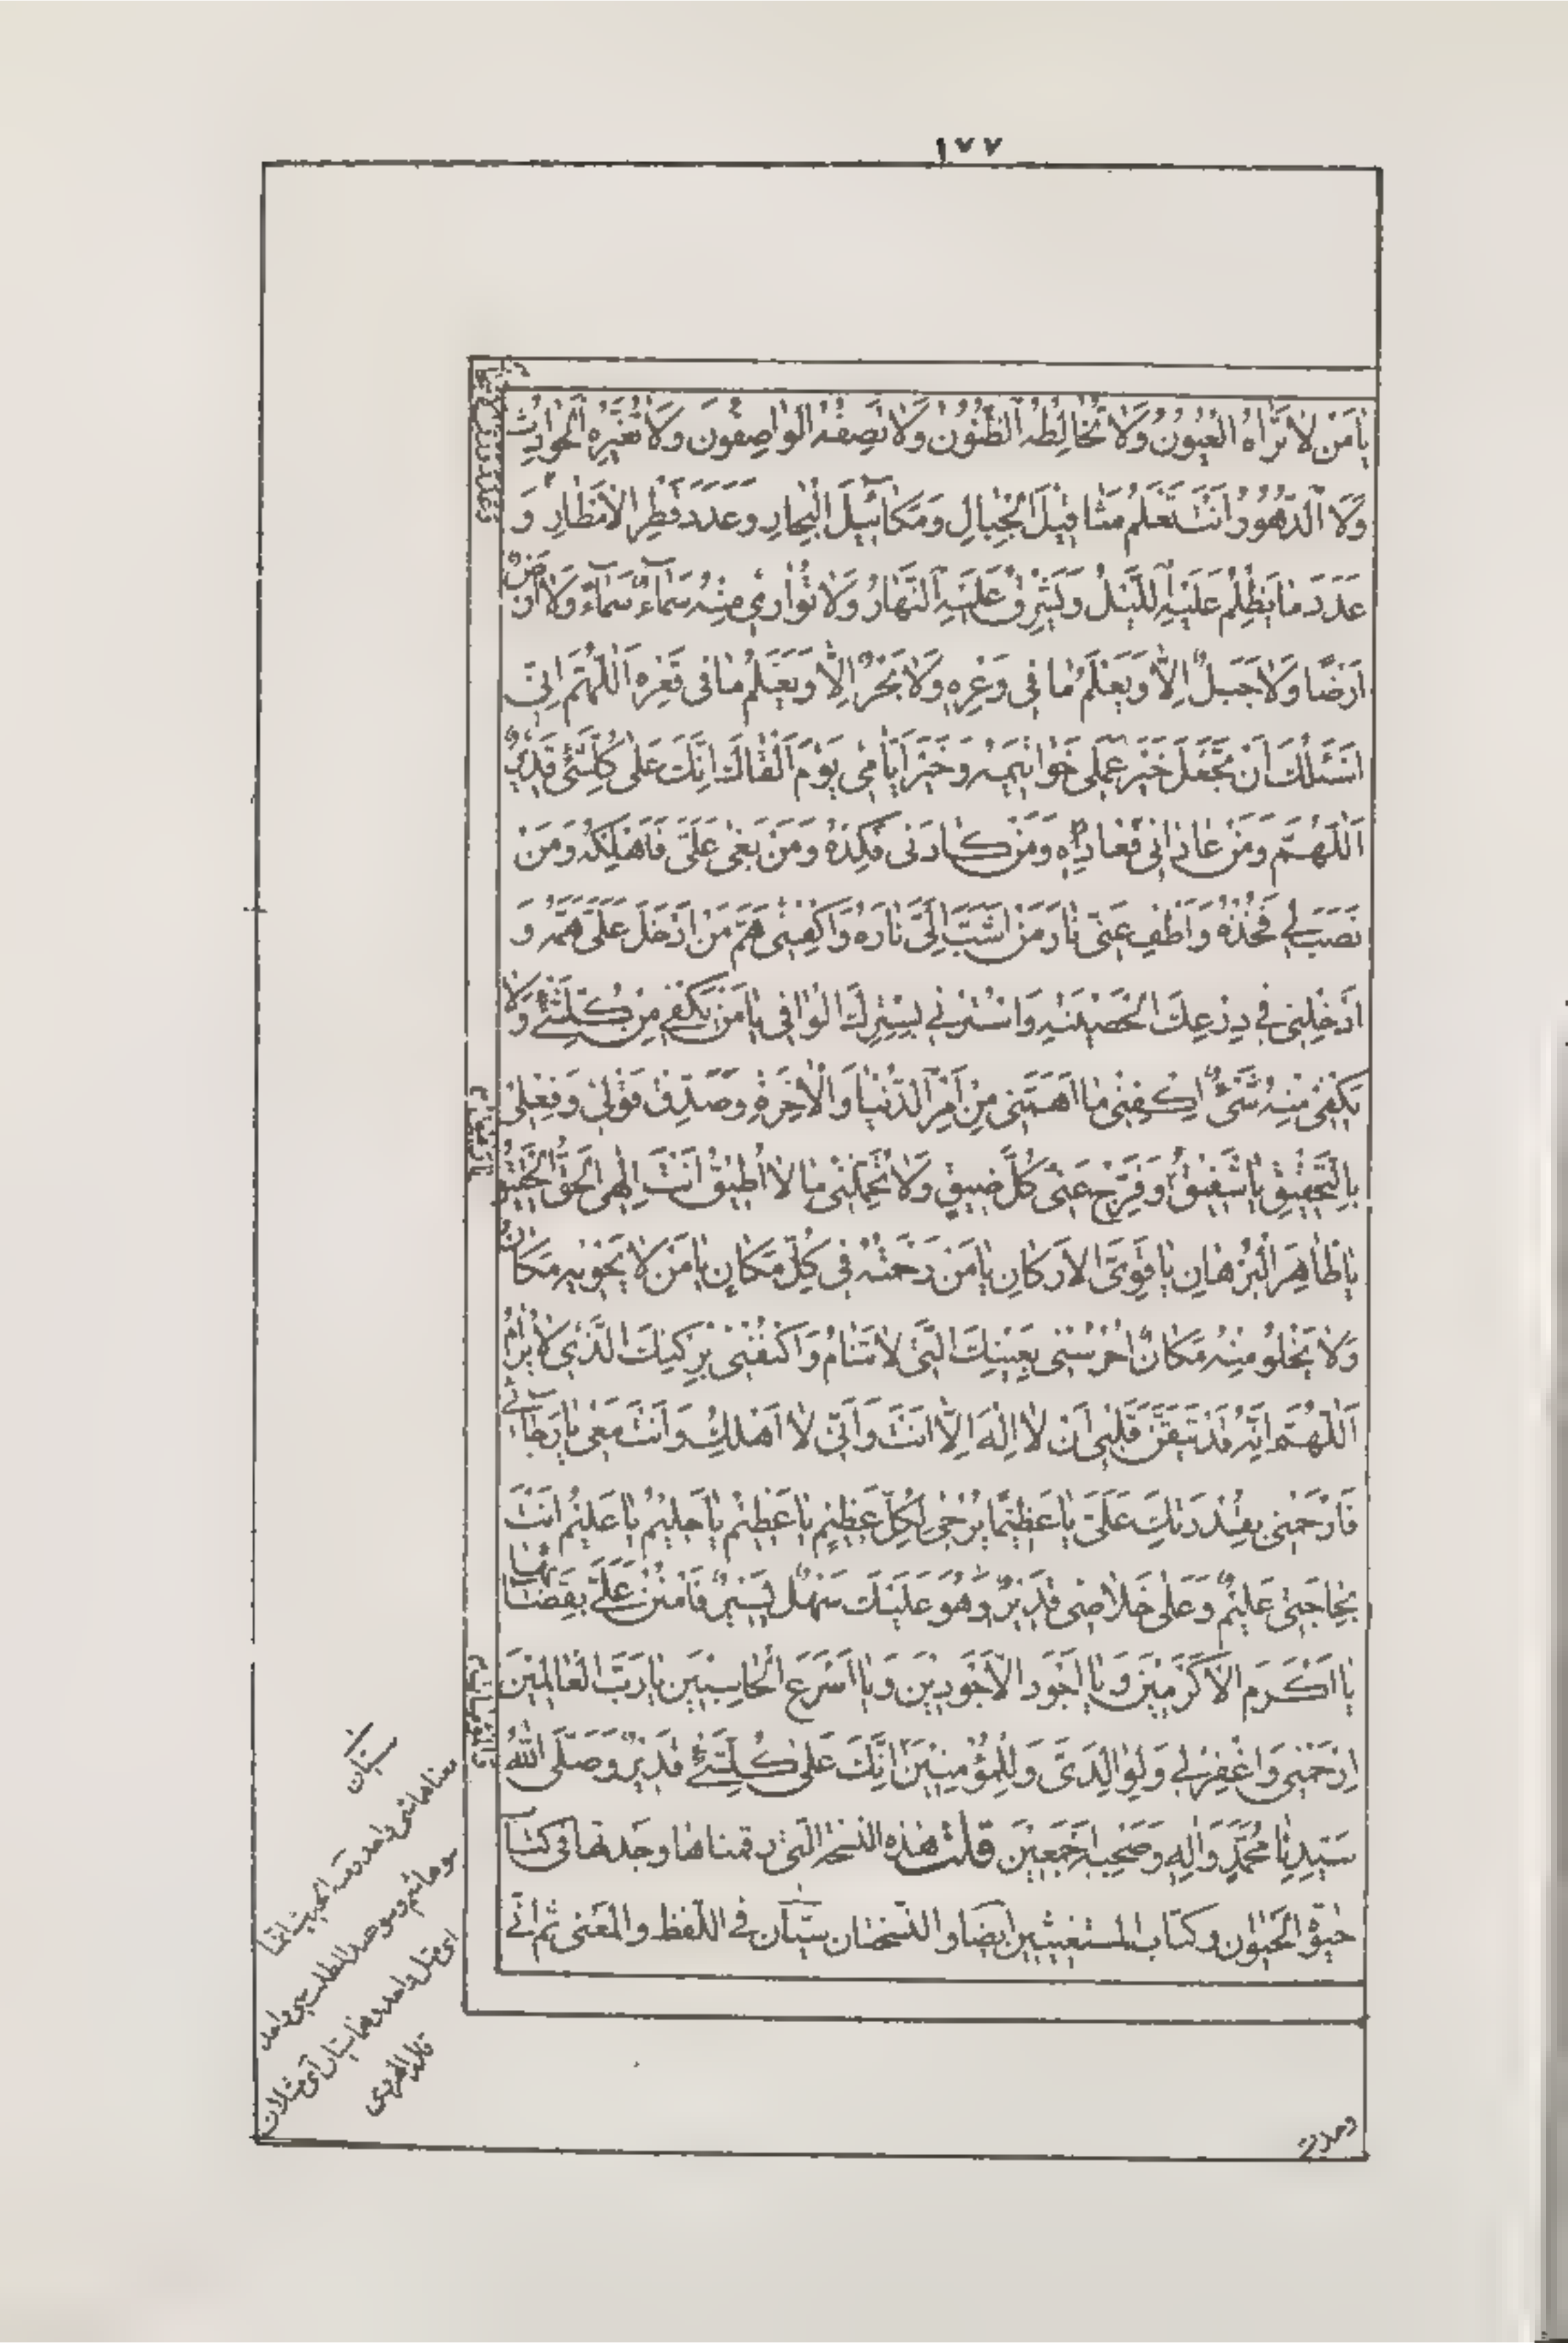 ١٧٧
يٰا مَنْ لاٰ تَرٰاهُ الْعُيُونُ وَلاٰ تُخٰالِطُهُ الظُّنُونُ وَلاٰ تَصِفُهُ الْوٰاصِفُونَ وَلاٰ تُغَيِّرُهُ الْحَوٰادِثُ
وَلاَ الدُّهُورُ اَنْتَ تَعْلَمُ مَثٰاقيٖلَ الْجِبٰالِ وَمَكٰائيٖلَ الْبِحٰارِ وَعَدَدَ قَطْرِ الْاَمْطٰارِ وَ
عَدَدَ مٰا يُظْلِمُ عَلَيْهِ اللَّيْلُ وَيُشْرِقُ عَلَيْهِ النَّهٰارُ وَلاٰ تُوٰارىٖ مِنْهُ سَمٰآءٌ سَمٰآءً وَلاٰ اَرْضٌ
اَرْضًا وَلاٰ جَبَلٌ اِلاّٰ وَيَعْلَمُ مٰا فىٖ وَعْرِهٖ وَلاٰ بَحْرٌ اِلاّٰ وَيَعْلَمُ مٰا فىٖ قَعْرِهٖ اَللّٰهُمَّ اِنّىٖ
اَسْئَلُكَ اَنْ تَجْعَلَ خَيْرَ عَمَلىٖ خَوٰاتيٖمَهُ وَخَيْرَ اَيّٰامىٖ يَوْمَ اَلْقٰاكَ اِنَّكَ عَلىٰ كُلِّشَئٍ قَديٖرٌ
اَللّٰهُمَّ وَمَنْ عٰادٰانىٖ فَعٰادِهٖ وَمَنْ كٰادَنىٖ فَكِدْهُ وَمَنْ بَغىٰ عَلَىَّ فَاَهْلِكْهُ وَمَنْ
نَصَبَ لىٖ فَخُذْهُ وَاَطْفِ عَنّىٖ نٰارَ مَنْ اَشَبَّ اِلَىَّ نٰارَهُ وَاكْفِنىٖ هَمَّ مَنْ اَدْخَلَ عَلَىَّ هَمَّهُ وَ
اَدْخِلْنىٖ فىٖ دِرْعِكَ الْحَصيٖنَةِ وَاسْتُرْنىٖ بِسِتْرِكَ الْوٰافىٖ يٰا مَنْ يَكْفىٖ مِنْ كُلِّشَئٍ وَلاٰ
يَكْفىٖ مِنْهُ شَئٌ اِكْفِنىٖ مٰا اَهَمَّنىٖ مِنْ اَمْرِ الدُّنْيٰا وَالْاٰخِرَةِ وَصَدِّقْ قَوْلىٖ وَفِعْلىٖ
بِالتَّحْقيٖقِ يٰا شَفيٖقُ وَفَرِّجْ عَنّىٖ كُلَّ ضيٖقٍ وَلاٰ تُحَمِّلْنىٖ مٰا لاٰ اُطيٖقُ اَنْتَ اِلٰهِى الْحَقُّ الْحَقيٖقُ
يٰا ظٰاهِرَ الْبُرْهٰانِ يٰا قَوِىَّ الْاَرْكٰانِ يٰا مَنْ رَحْمَتُهُ فىٖ كُلِّ مَكٰانٍ يٰا مَنْ لاٰ يَحْويٖهِ مَكٰانٌ
وَلاٰ يَخْلُو مِنْهُ مَكٰانٌ اُحْرُسْنىٖ بِعَيْنِكَ الَّتىٖ لاٰ تَنٰامُ وَاكْنُفْنىٖ بِرُكْنِكَ الَّذىٖ لاٰ يُرٰامُ
اَللّٰهُمَّ اِنَّهُ قَدْ تَيَقَّنَ قَلْبىٖ اَنْ لاٰ اِلٰهَ اِلاّٰ اَنْتَ وَاَنّىٖ لاٰ اَهْلِكُ وَاَنْتَ مَعىٖ يٰا رَجٰآئىٖ
فَارْحَمْنىٖ بِقُدْرَتِكَ عَلَىَّ يٰا عَظيٖمًا يُرْجىٰ لِكُلِّ عَظيٖمٍ يٰا عَظيٖمُ يٰا حَليٖمُ يٰا عَليٖمُ اَنْتَ
بِحٰاجَتىٖ عَليٖمٌ وَعَلىٰ خَلاٰصىٖ قَديٖرٌ وَهُوَ عَلَيْكَ سَهْلٌ يَسيٖرٌ فَامْنُنْ عَلَىَّ بِقَضٰائِهٰا
يٰا اَكْرَمَ الْاَكْرَميٖنَ وَيٰا اَجْوَدَ الْاَجْوَديٖنَ وَيٰا اَسْرَعَ الْحٰاسِبيٖنَ يٰا رَبَّ الْعٰالَميٖنَ
اِرْحَمْنىٖ وَاغْفِرْ لىٖ وَلِوٰالِدَىَّ وَلِلْمُؤْمِنيٖنَ اِنَّكَ عَلىٰ كُلِّشَئٍ قَديٖرٌ وَصَلَّى اللّٰهُ
سَيِّدِنٰا مُحَمَّدٍ وَاٰلِهٖ وَصَحْبِهٖ اَجْمَعيٖنَ قلت هٰذه النسخة الّتىٖ رقمناها وجدتها فى كتاب
حيٰوة الحيوٰن وكتاب المستغيثين ايضا والنسختان سيّان فى اللّفظ والمعنىٰ ثم انّى
سيّان
قاله الهروى